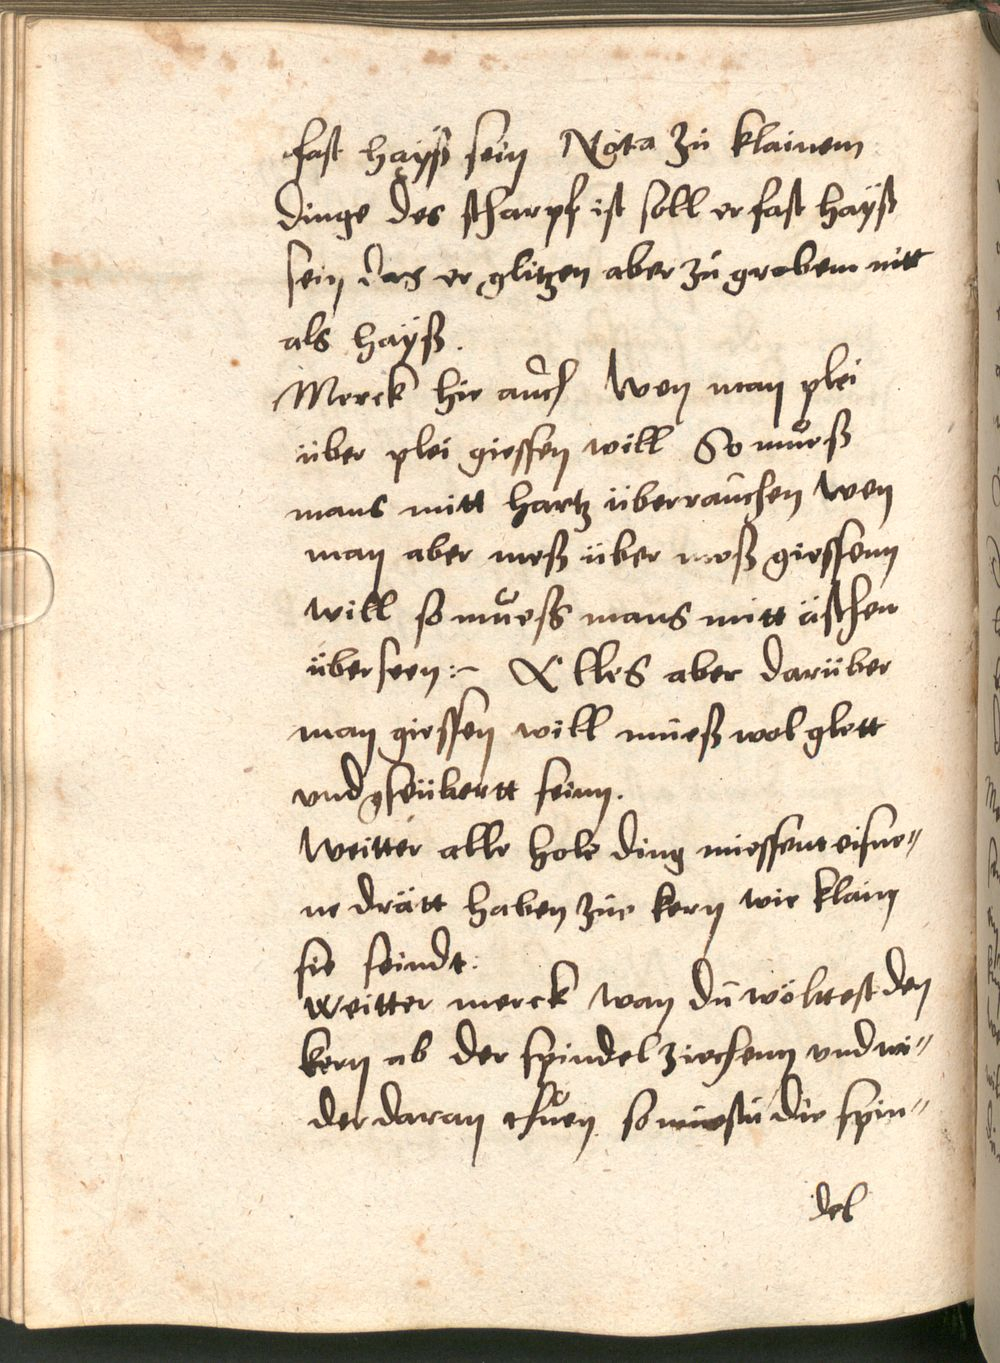 fast hayß sein Nota zů klainem
dinge des scharpf ist soll er fast haÿß
sein das er glitzen aber zů grobem nitt
als haÿß.
Merck hie auch Wen man plei
über plei giessen will So můeß
mans mitt hartz überrauchen Wen
man aber meß über meß giessenn
will so můeß mans mitt äschen
überseen :~ Alles aber darüber
man giessen will müeß wol glett
vnd gseübertt seinn.
Weitter alle hole ding miessent eisne〃
ne drätt haben zue kern wie klain
sie seindt.
Weitter merck wan du wöltest den
kern ab der spindel ziechenn vnd wi〃
der daran thůen so müestu die spin〃
del